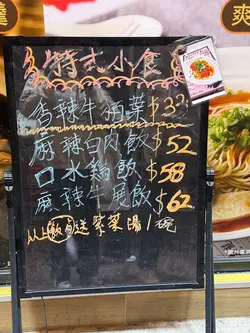 特式小食
香辣牛柏葉 $32
麻辣白肉飯 $52
口水鷄飯 $58
麻辣牛展飯 $62
以上飯自送紫菜湯1碗
爽